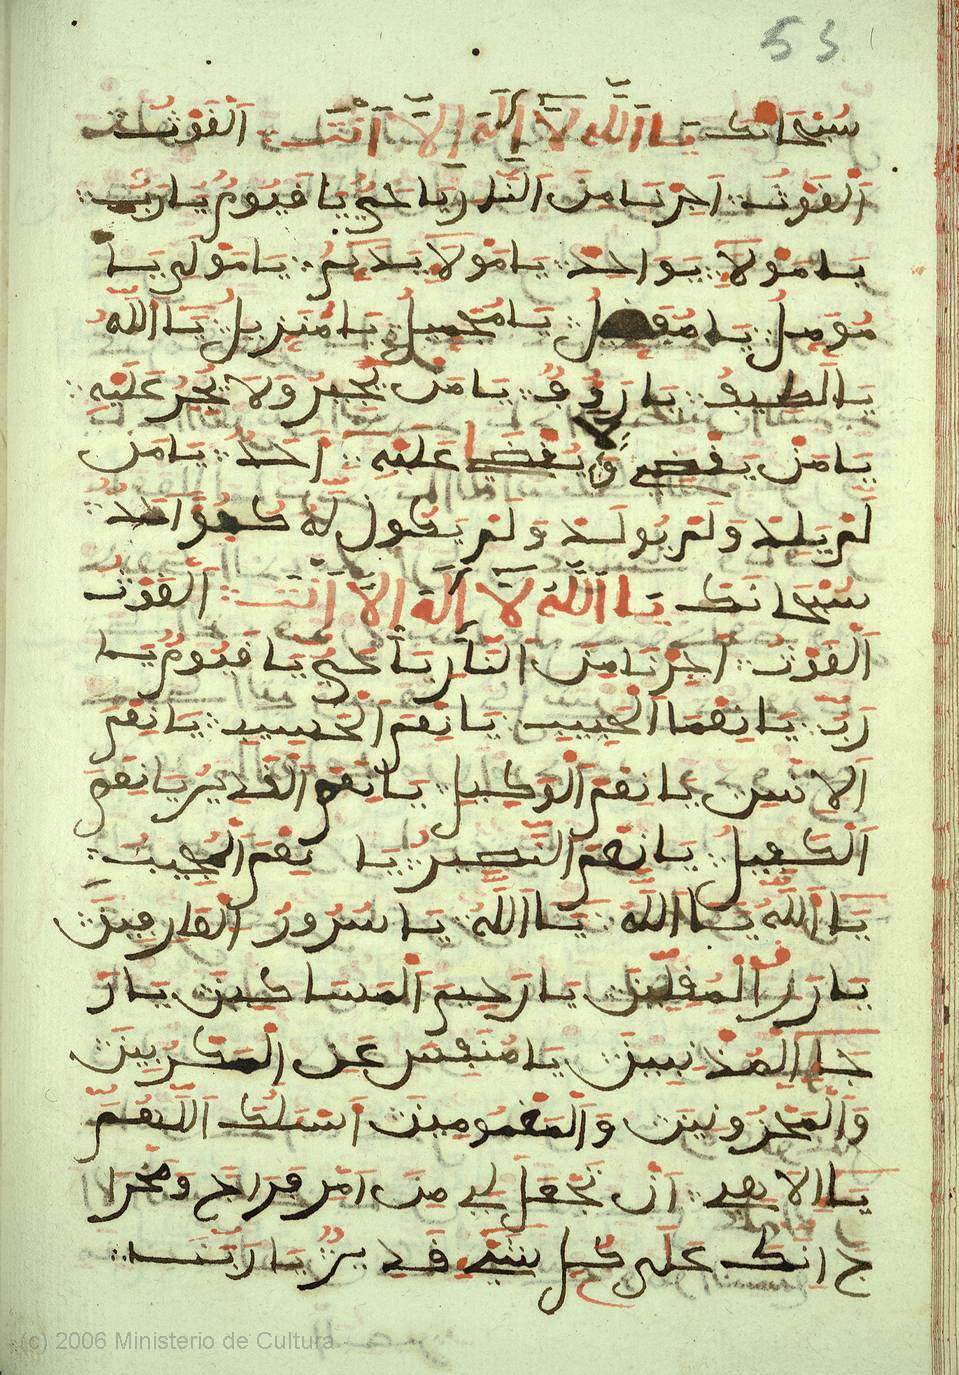 53
سبحانك يا الله لا إله إلا أنت الغوث
الغوث أجرنا من النار يا حي يا قيوم يا رب
يا مولا يواحد يا مولا يديم يا مولى يا
مؤمل يا مفضل يا مجميل يا منزيل يا الله
يا الطيف يا رؤوف يا من يجير ولا يجر عليه
يا من يقضي ولا يقضى عليه أحد يا من
لم يلد ولم يولد ولم يكول له كفوا احد
سبحانك يا الله لا إله إلا أنت الغوث
الغوث أجرنا من النار يا حي يا قيوم يا
رب يا نعما الحبيب يا نعم الحسيب يا نعم
الانس يا نعم الوكيل يا نعم القدير يا نعم
الكفيل يا نعم النصير يا نعم المجيب
يا الله يا الله يا الله يا سرور العارفين
يا رزر المقلين يا رحيم المساكين يا ر
جا المذنبين يا منفس عن المكربين
والمحزونين والمغمومين اسلك اللهم
يا الاهي أن تجعل لي من امر فراج ومخرا
ج انك على كل شيء قدير يا ربنا
(c) 2006 Ministerio de Cultura